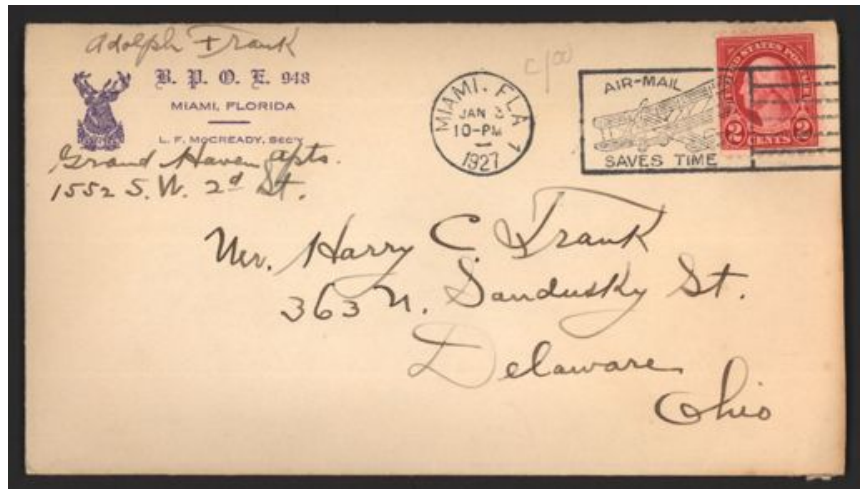 Adolph Frank
B. P. O. E. 948
MIAMI, FLORIDA
L. F. McCREADY, Sec'y
Grand Haven Apts.
1552 S. W. 2d St.
MIAMI, FLA. 1
JAN 3
10-PM
1927
AIR-MAIL
SAVES TIME
UNITED STATES POSTAGE
2 CENTS 2
Mr. Harry C. Frank
363 N. Sandusky St.
Delaware
Ohio